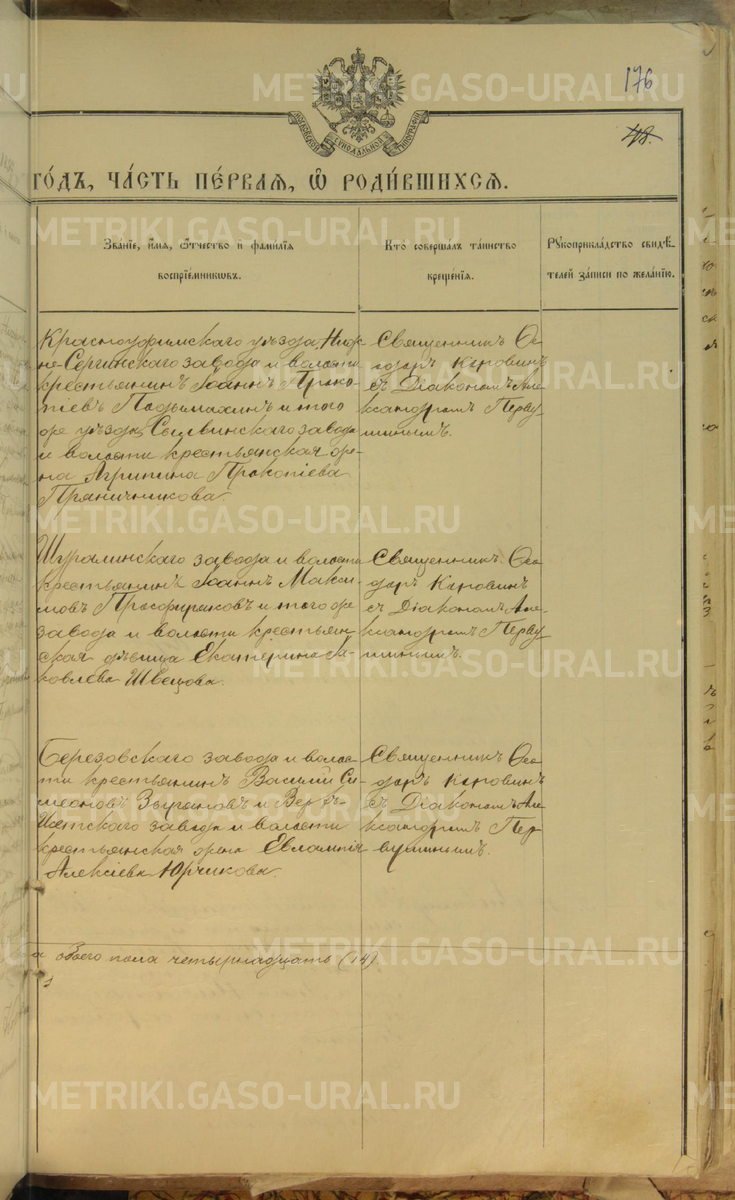 176
48.
МОСКОВСКОЙ СѴНОДАЛЬНОЙ ТИПОГРАФІИ
ГО́ДЪ, ЧА́СТЬ ПЕ́РВАЯ, Ѡ РОДИ́ВШИХСЯ.
Зва́нїе, и́мя, ѻ́тчество и҆ фами́лїя
воспрїе́мникѡвъ.
Кто̀ соверша́лъ та́инство
креще́нїя.
Рꙋкоприкла́дство свидѣ́-
телей за́писи по жела́нїю.
Красноуфимскаго уѣзда, Ниж-
не-Сергинскаго завода и волости
крестьянинъ Іоаннъ Проко-
піевъ и того
же уѣзда, Сылвинскаго завода
и волости крестьянская же-
на Агрипина Прокопіева
Пряничникова.
Священникъ Ѳе-
одоръ Каровинъ
съ Діакономъ Але-
ксандромъ Перву-
шинымъ.
Шуралинскаго завода и волости
крестьянинъ Іоаннъ Макси-
мовъ и того же
завода и волости крестьян-
ская дѣвица Екатерина Я-
ковлева Швецова.
Священникъ Ѳео-
доръ Каровинъ
съ Діакономъ Але-
ксандромъ Перву-
шинымъ.
Березовскаго завода и волос-
ти крестьянинъ Василій Си-
меоновъ Зыряновъ и Верхъ-
Исетскаго завода и волости
крестьянская жена Евлампія
Алексіева Юрчикова.
Священникъ Ѳео-
доръ Каровинъ
съ Діакономъ Але-
ксандромъ Пер-
вушинымъ.
а обоего пола четырнадцать (14)
METRIKI.GASO-URAL.RU